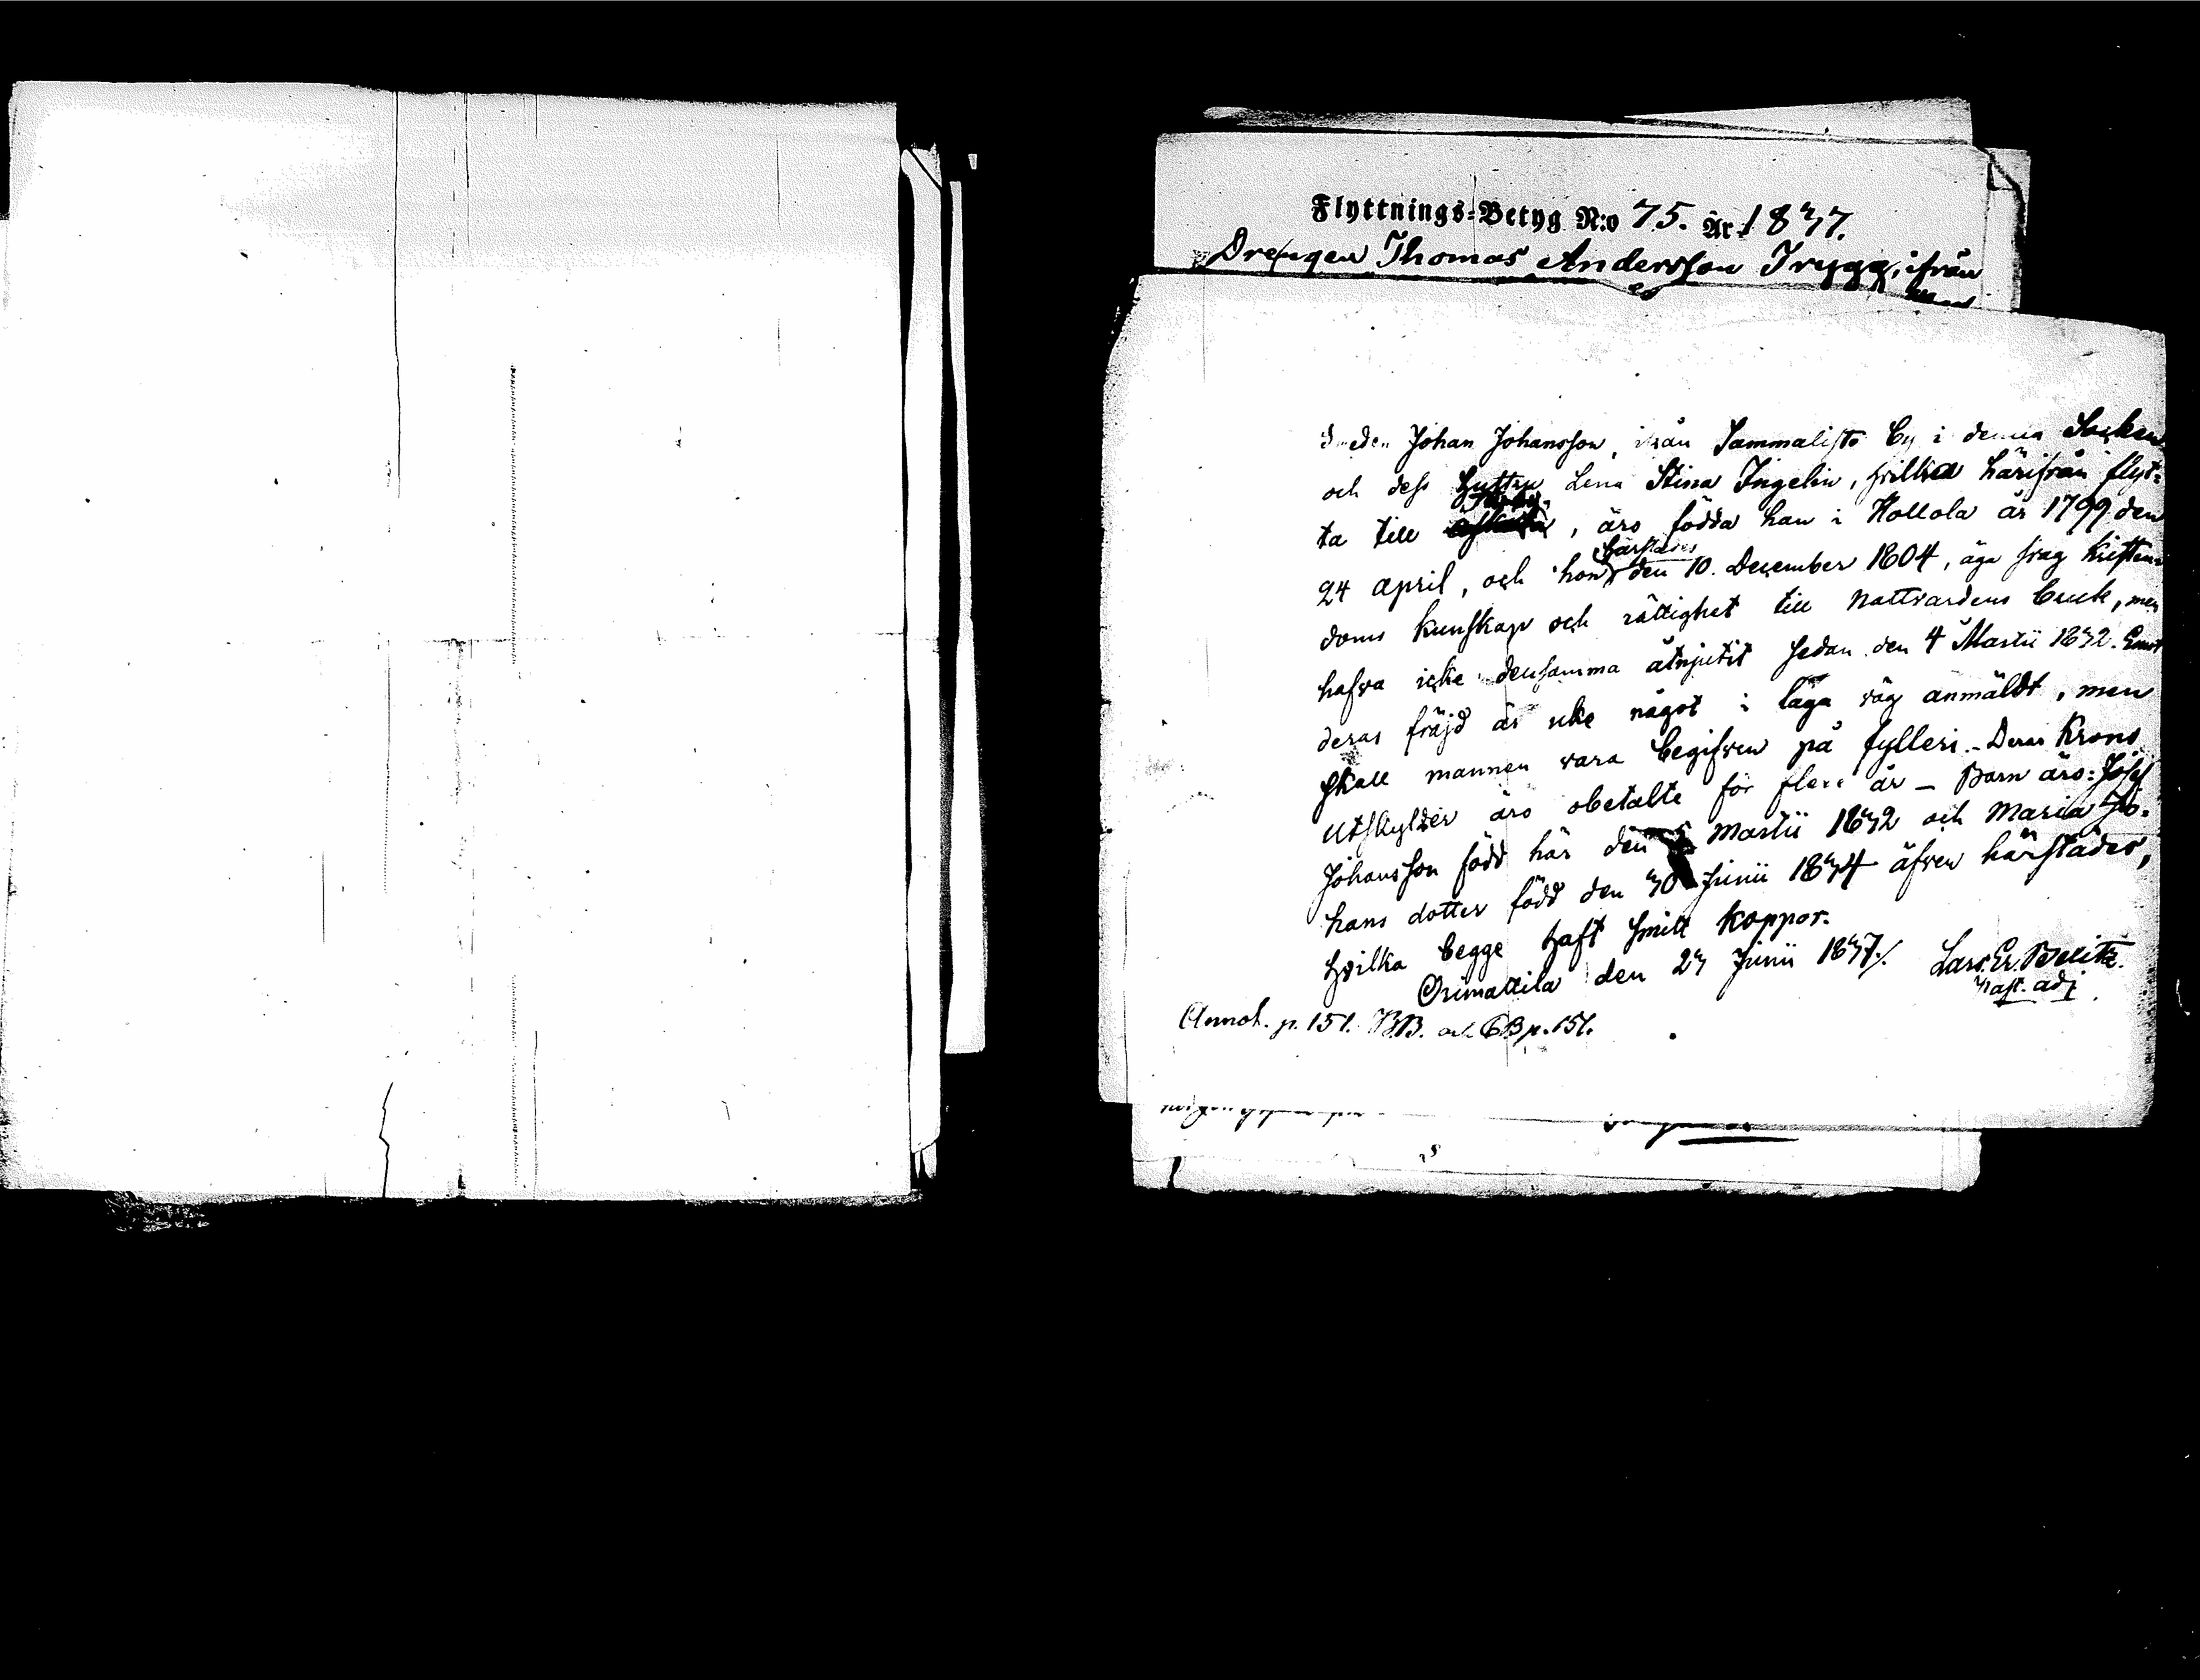 Flyttnings-Betyg N:o 75. År 1837.
Drengen Thomas Andersson Trygg, ifrån
Smeden Johan Johansson, ifrån Sammalisto By i denna Socken
och dess hustru Lena Stina Ingelin, hvilka härifrån flyt-
ta till, äro födda han i Hollola år 1799 den
24 april, och hon härstädes den 10. December 1804, äga svag kristen-
doms kunskap och rättighet till Nattvardens bruk, men
hafva icke densamma åtnjutit sedan den 4 Martii 1832. Emot
deras fräjd är icke något i laga väg anmäldt, men
skall mannen vara begifven på fylleri. - Deras Krono
utskylder äro obetalte för flere år - Barn äro: Josef
Johansson född här den Martii 1832 och Maria Jo-
hans dotter född den 30 Junii 1834 äfven härstädes,
hvilka begge haft smitt koppor.
Orimattila den 23 Junii 1837./. Lars Er. Belitz.
Past. adj
Annot. p. 151. BB. och CB p. 151.